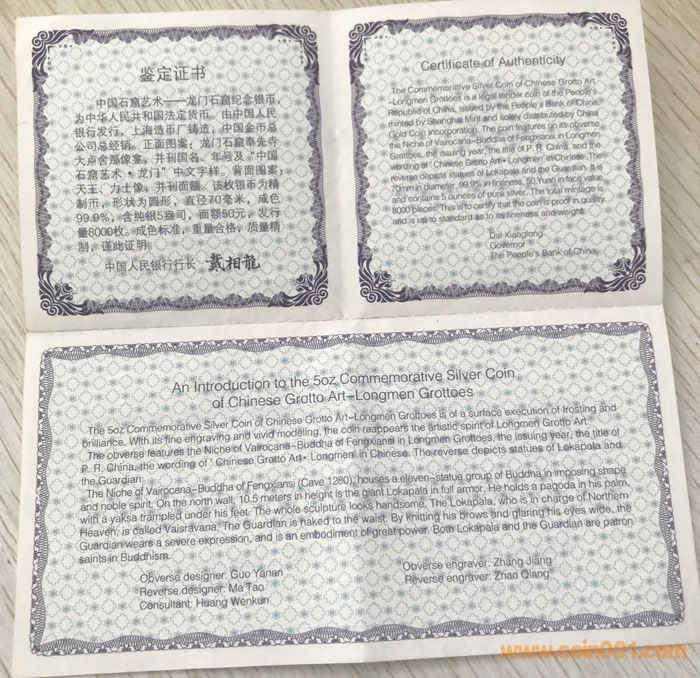 鉴定证书
中国石窟艺术——龙门石窟纪念银币，
为中华人民共和国法定货币。由中国人民
银行发行，上海造币厂铸造，中国金币总
公司总经销。正面图案：龙门石窟奉先寺
大卢舍那像龛，并刊国名、年号及“中国
石窟艺术·龙门”中文字样。背面图案：
天王、力士像，并刊面额。该枚银币为精
制币，形状为圆形，直径70毫米，成色
99.9%，含纯银5盎司，面额50元，发行
量8000枚。成色标准，重量合格，质量精
制，谨此证明。
中国人民银行行长 戴相龍
Certificate of Authenticity
The Commemorative Silver Coin of Chinese Grotto Art
-Longmen Grottoes is a legal tender coin of the People's
Republic of China, issued by the People's Bank of China,
minted by Shanghai Mint and solely distributed by China
Gold Coin Incorporation. The coin features on its obverse
the Niche of Vairocana-Buddha of Fengxiansi in Longmen
Grottoes, the issuing year, the title of P. R. China, and the
wording of ' Chinese Grotto Art • Longmen' in Chinese. The
reverse depicts statues of Lokapala and the Guardian. It is
70mm in diameter, 99.9% in fineness, 50 Yuan in face value
and contains 5 ounces of pure silver. The total mintage is
8000 pieces. This is to certify that the coin is proof in quality
and is up to standard as to its fineness and weight.
Dai Xianglong
Governor
The People's Bank of China
An Introduction to the 5oz Commemorative Silver Coin
of Chinese Grotto Art-Longmen Grottoes
The 5oz Commemorative Silver Coin of Chinese Grotto Art-Longmen Grottoes is of a surface execution of frosting and
brilliance. With its fine engraving and vivid modeling, the coin reappears the artistic spirit of Longmen Grotto Art.
The obverse features the Niche of Vairocana-Buddha of Fengxiansi in Longmen Grottoes, the issuing year, the title of
P. R. China, the wording of ' Chinese Grotto Art• Longmen' in Chinese. The reverse depicts statues of Lokapala and
the Guardian.
The Niche of Vairocana-Buddha of Fengxiansi (Cave 1280), houses a eleven-statue group of Buddha in imposing shape
and noble spirit. On the north wall, 10.5 meters in height is the giant Lokapala in full armor. He holds a pagoda in his palm,
with a yaksa trampled under his feet. The whole sculpture looks handsome. The Lokapala, who is in charge of Northern
Heaven, is called Vaisravana. The Guardian is naked to the waist. By knitting his brows and glaring his eyes wide, the
Guardian wears a severe expression, and is an embodiment of great power. Both Lokapala and the Guardian are patron
saints in Buddhism.
Obverse designer: Guo Yanan
Reverse designer: Ma Tao
Consultant: Huang Wenkun
Obverse engraver: Zhang Jiang
Reverse engraver: Zhao Qiang
www.coin001.com